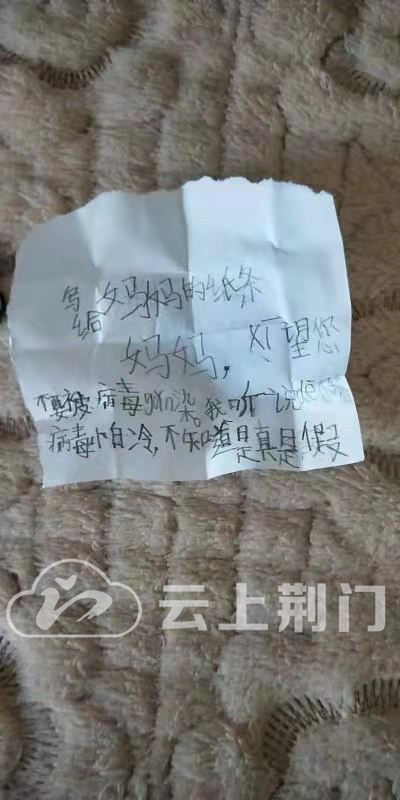 写给妈妈的纸条
妈妈，xī望您
不要被病毒gǎn染。我听说
病毒怕冷，不知道是真是假
云上荆门